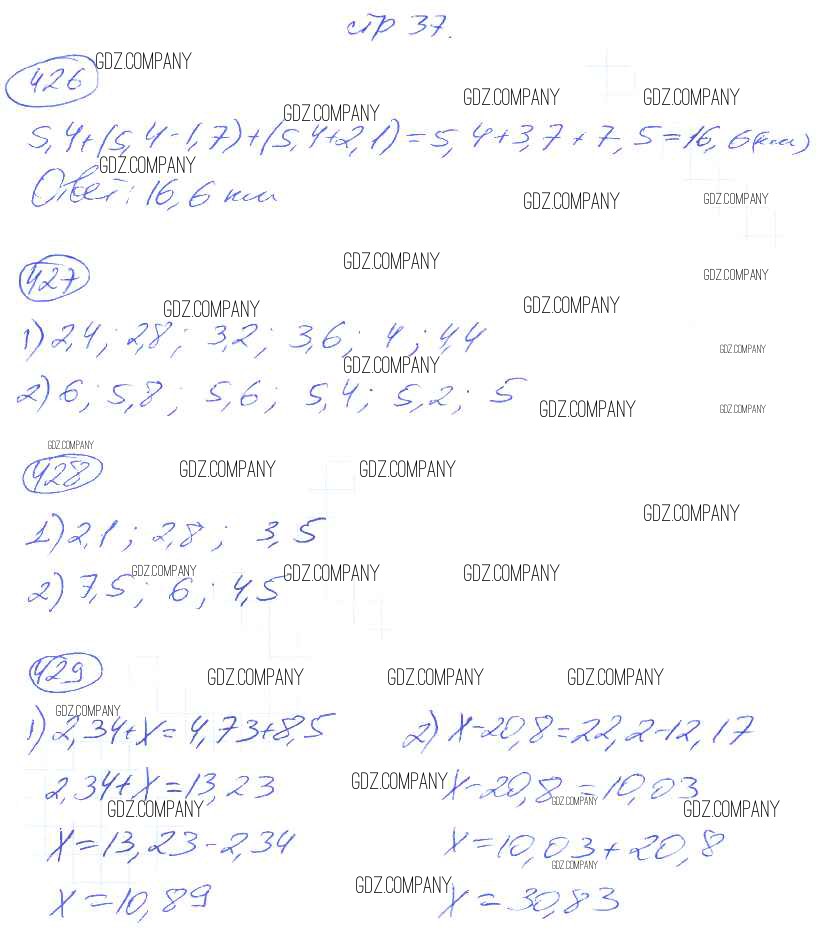 стр 37.
GDZ.COMPANY
426
GDZ.COMPANY GDZ.COMPANY GDZ.COMPANY
5,4+(5,4-1,7)+(5,4+2,1)=5,4+3,7+7,5=16,6(км)
GDZ.COMPANY
Ответ: 16,6 км
GDZ.COMPANY GDZ.COMPANY
GDZ.COMPANY
427
GDZ.COMPANY
GDZ.COMPANY GDZ.COMPANY
1) 2,4; 2,8; 3,2; 3,6; 4; 4,4
GDZ.COMPANY
GDZ.COMPANY
2) 6; 5,8; 5,6; 5,4; 5,2; 5
GDZ.COMPANY GDZ.COMPANY
GDZ.COMPANY
428
GDZ.COMPANY GDZ.COMPANY
GDZ.COMPANY
1) 2,1; 2,8; 3,5
GDZ.COMPANY GDZ.COMPANY GDZ.COMPANY
2) 7,5; 6; 4,5
429
GDZ.COMPANY GDZ.COMPANY GDZ.COMPANY
GDZ.COMPANY
1) 2,34+x=4,73+8,5
2,34+x=13,23
GDZ.COMPANY
x=13,23-2,34
x=10,89
2) x-20,8=22,2-12,17
GDZ.COMPANY
x-20,8=10,03
GDZ.COMPANY GDZ.COMPANY
x=10,03+20,8
GDZ.COMPANY
GDZ.COMPANY
x=30,83